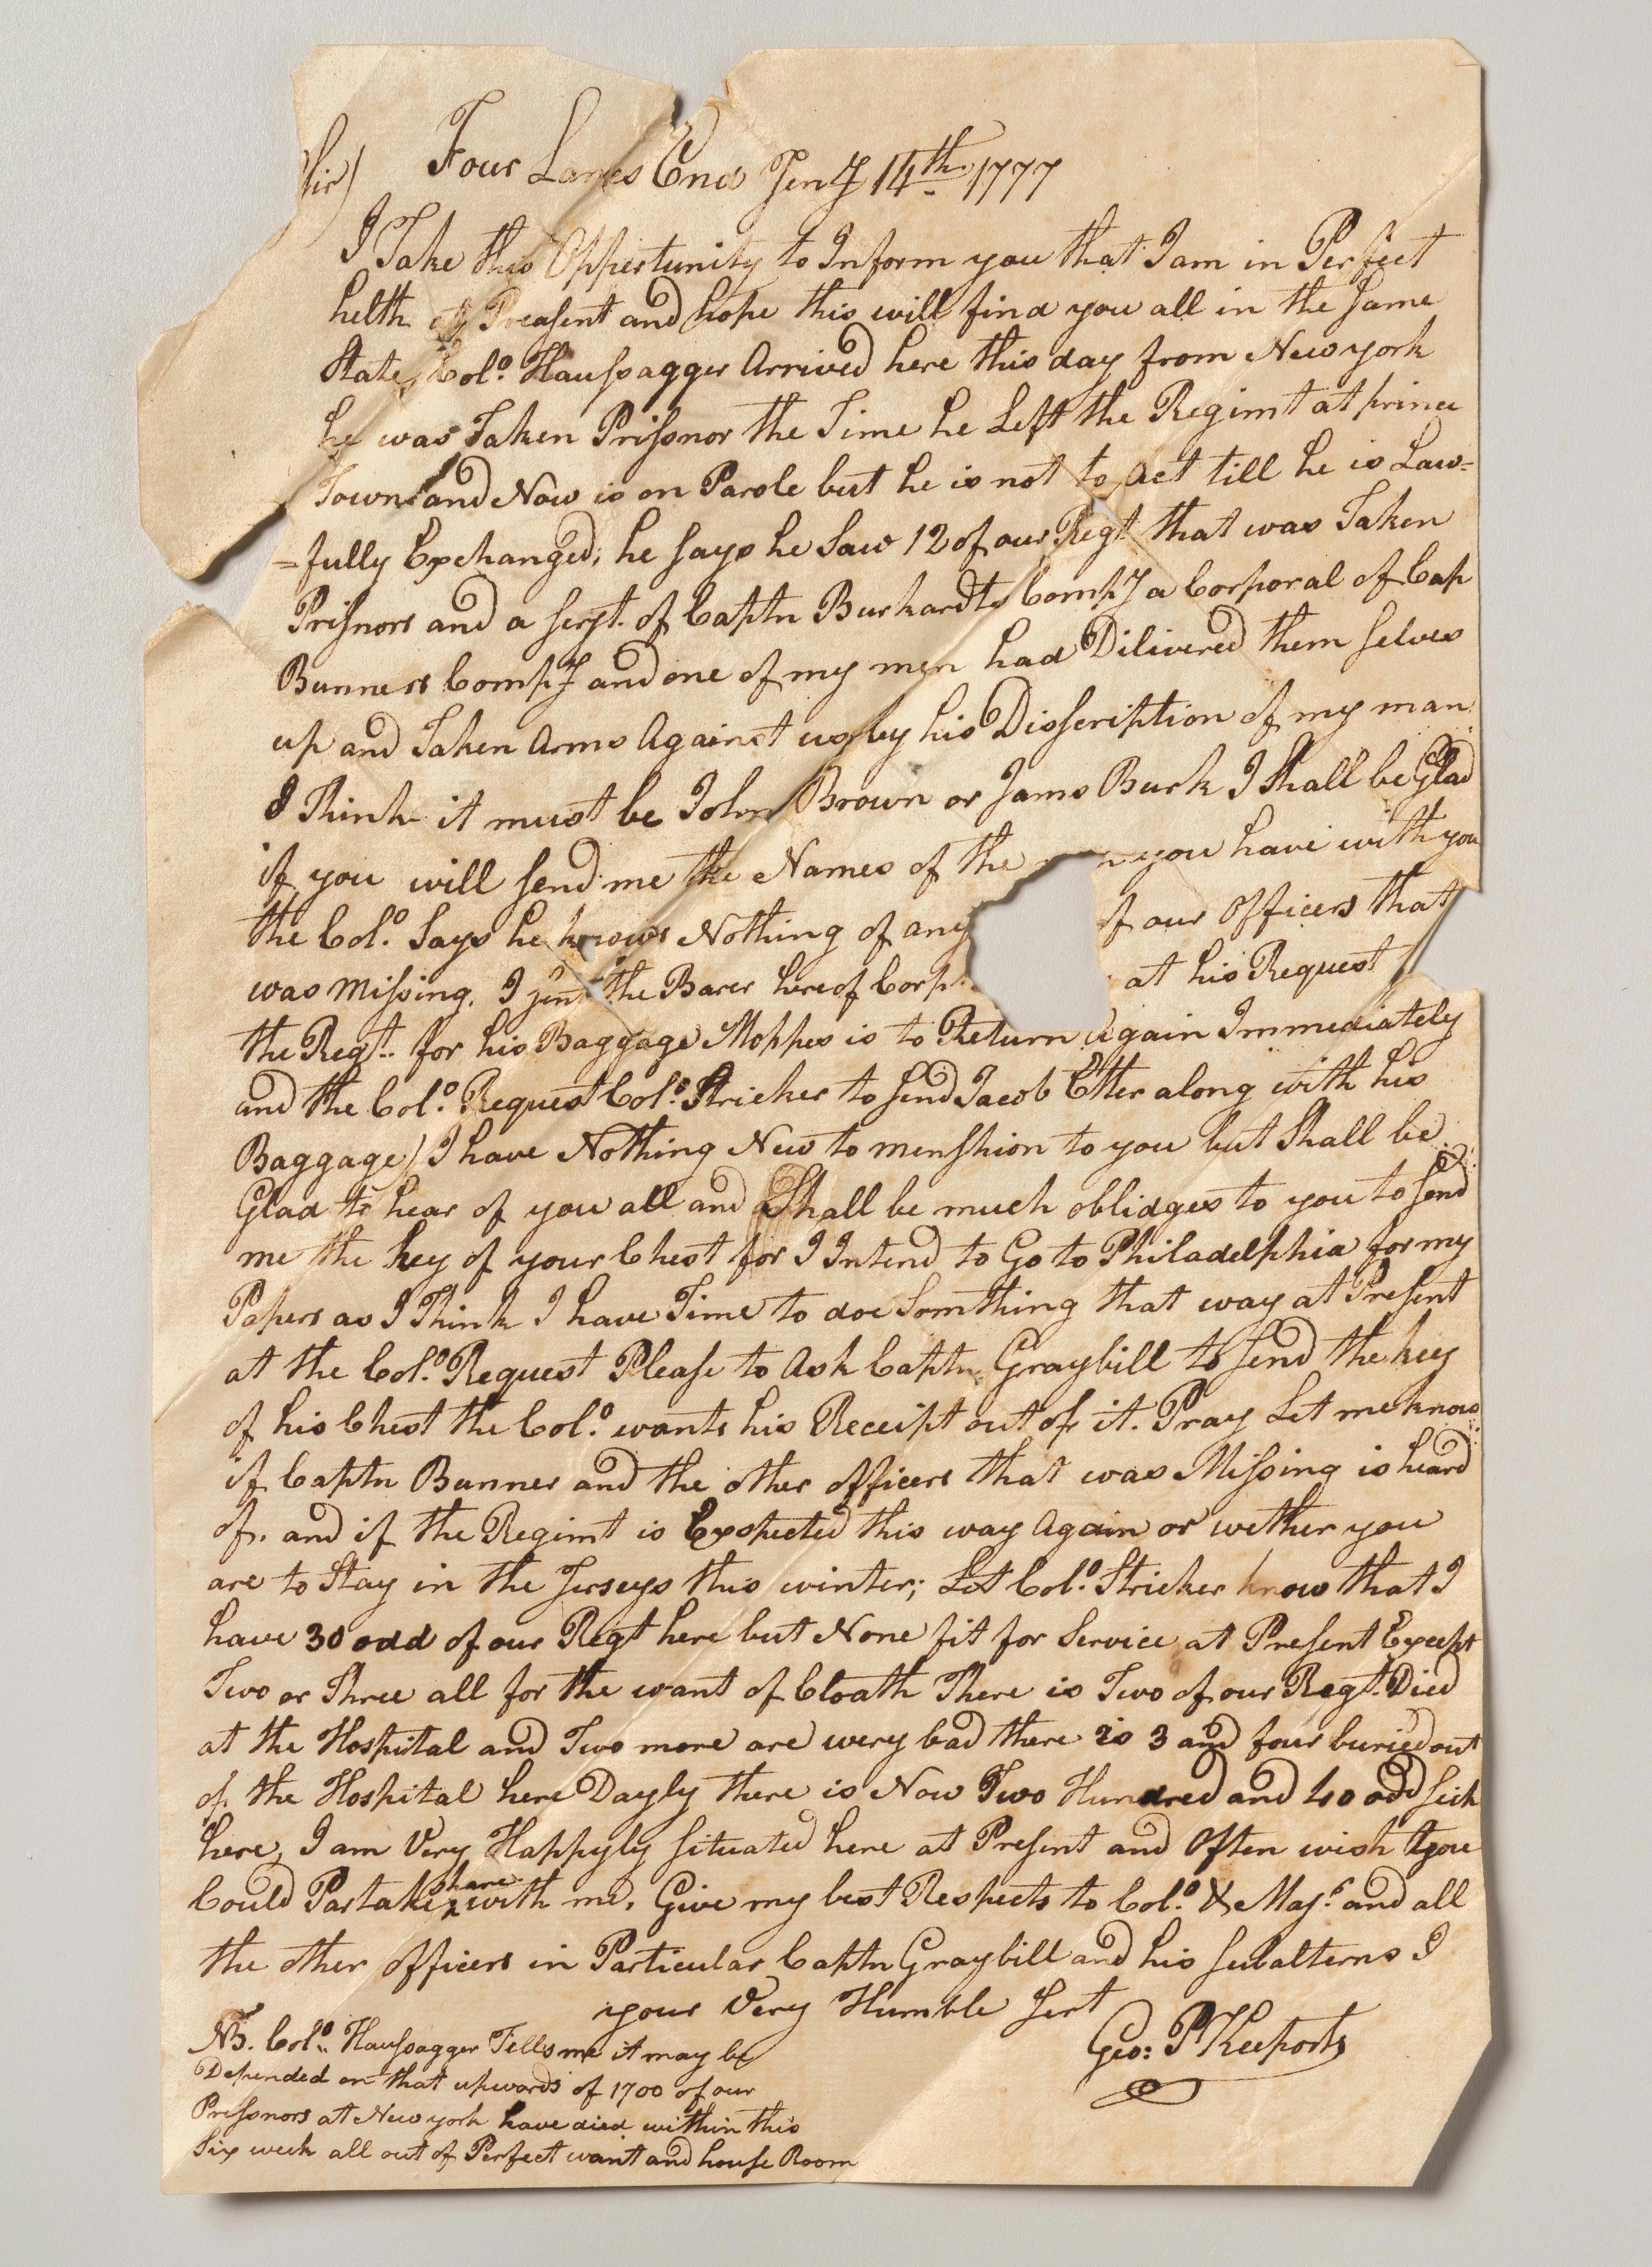 Sir) Four Lanes End Jeny 14th. 1777
I Take this Oppertunity to Inform you that I am in Perfect
helth at Preasent and hope this will find you all in the same
State, Colo. Haussagger Arrived here this day from New york
he was Taken Prissnor the Time he Left the Regimt at prince
Town and Now is on Parole but he is not to Act till he is Law=
=fully Exchanged; he says he Saw 12 of our Regt that was Taken
Prisnors and a serjt. of Captn Burkardts Compy a Corporal of Cap
Bunners Compy and one of my men had Dilivered them selves
up and Taken Arms Against us by his Disscription of my man
I Think it must be John Brown or Jams Burk I Shall be Glad
if you will send me the Names of the you have with you
the Colo. Says he knows Nothing of any of our Officers that
was Missing. I sent the Barer hereof Corp. at his Request
the Regt.. for his Baggage Moppes is to Return Again Immediately
and the Colo. Request Colo. Stricker to send Jacob Etter along with his
Baggage / I have Nothing New to menshion to you but Shall be
Glad to hear of you all and Shall be much oblidges to you to send
me the key of your Chest for I Intend to Go to Philadelphia for my
Papers as I Think I have Time to doe Somthing that way at Present
at the Colo. Request Please to Ask Captn. Graybill to send the key
of his Chest the Colo. wants his Receipt out of it. Pray Let me know
if Captn Bunner and the other officers that was Missing is heard
of. and if the Regimt is Exspected this way Again or wether you
are to Stay in the Jerseys this winter; Let Colo. Stricker know that I
have 30 odd of our Regt here but None fit for Service at Present Except
Two or Three all for the want of Cloath There is Two of our Regt. Died
at the Hospital and Two more are very bad there is 3 and four buried out
of the Hospital here Dayly there is Now Two Hundred and 40 odd sick
here, I am Very Happyly situated here at Present and Often wish you
Could Partake share with me. Give my best Respects to Colo. & Majr. and all
the other officers in Particular Captn Graybill and his subalterns I
your Very Humble Sert
Geo: P Keeports
NB. Colo.. Haussagger Tells me it may be
Depended on that upwards of 1700 of our
Prissnors at New york have died within this
Six week all out of Perfect want and house Room